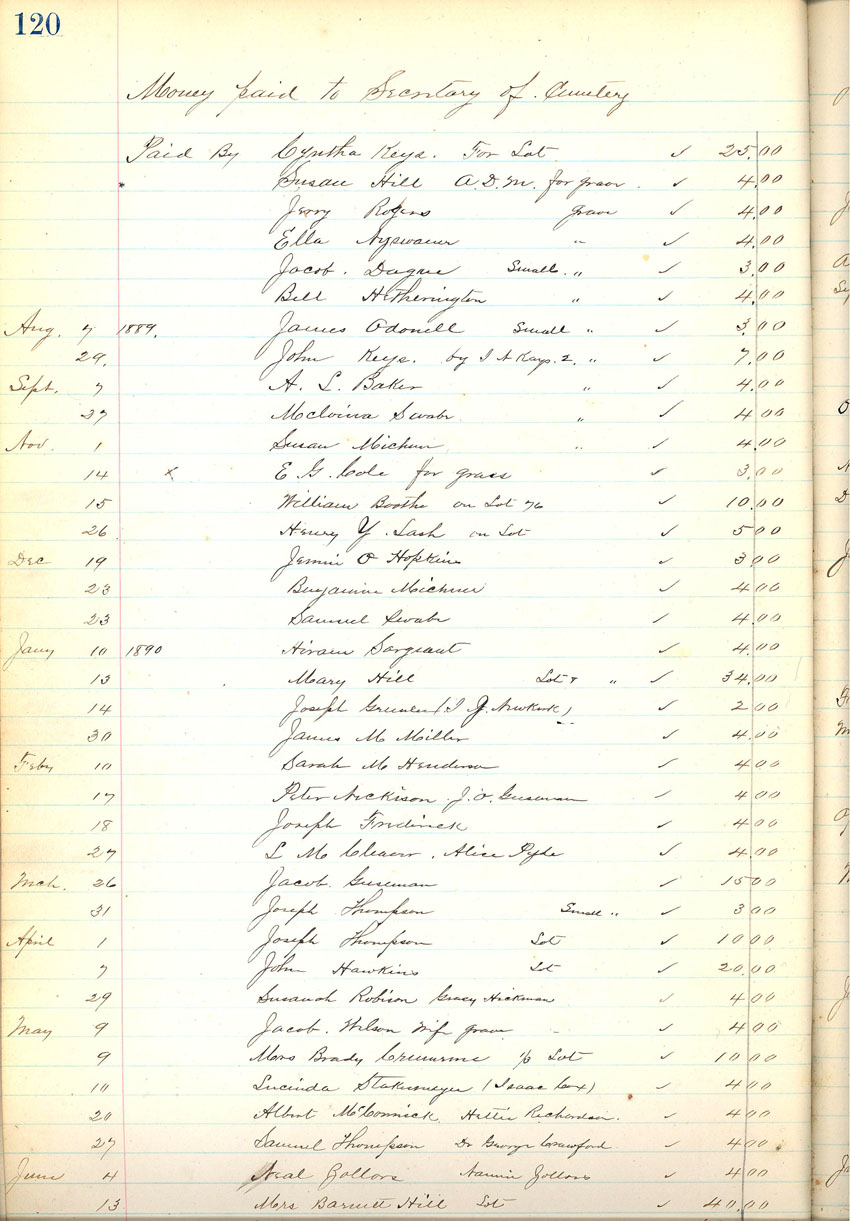 120
Money paid to Secretary of Cemetery
Paid By Cyntha Keys. For Lot ✓ 25.00
Susan Hill A.D.M. for grave ✓ 4.00
Jerry Rogers grave ✓ 4.00
Ella Nyswaner " ✓ 4.00
Jacob. Dague Small " ✓ 3.00
Bell Hetherington " ✓ 4.00
Aug. 7 1889. James Odonell Small " ✓ 3.00
29. John Keys. by I N Keys. 2. " ✓ 7.00
Sept. 7 A. L. Baker " ✓ 4.00
27 Melvina Swabe " ✓ 4 00
Nov. 1 Susan Michner " ✓ 4.00
14 x E. G. Cole for grass ✓ 3.00
15 William Boothe on Lot 76 ✓ 10.00
26 Henry Y. Lash on Lot ✓ 5 00
Dec 19 Jennie O Hopkins ✓ 3 00
23 Benjamin Michner ✓ 4 00
23 Samuel Swabe ✓ 4.00
Jany 10 1890 Hiram Sargeant ✓ 4.00
13 Mary Hill Lot & " ✓ 34.00
14 Joseph (I J. Newkirk) ✓ 2 00
30 James M Miller ✓ 4.00
Feby 10 Sarah M Henderson ✓ 4 00
17 Peter Nickison. J. O. Guseman ✓ 4 00
18 Joseph Frederick ✓ 4 00
27 L M Cleaver. Alice Pyle ✓ 4.00
Mch. 26 Jacob. Guseman ✓ 15 00
31 Joseph Thompson Small " ✓ 3 00
April 1 Joseph Thompson Lot ✓ 10 00
7 John Hawkins Lot ✓ 20.00
29 Susanah Robison Gracy Hickman ✓ 4 00
May 9 Jacob. Wilson Wife grave ✓ 4 00
9 Mrs Brady Lot ✓ 10 00
10 Lucinda (Isaac Cox) ✓ 4 00
20 Albert McCormick Hettie Richardson. ✓ 4 00
27 Samuel Thompson Dr George Crawford ✓ 4 00
June 4 Neal Zollars Nannie Zollars ✓ 4 00
13 Mrs Barnett Hill Lot ✓ 40.00